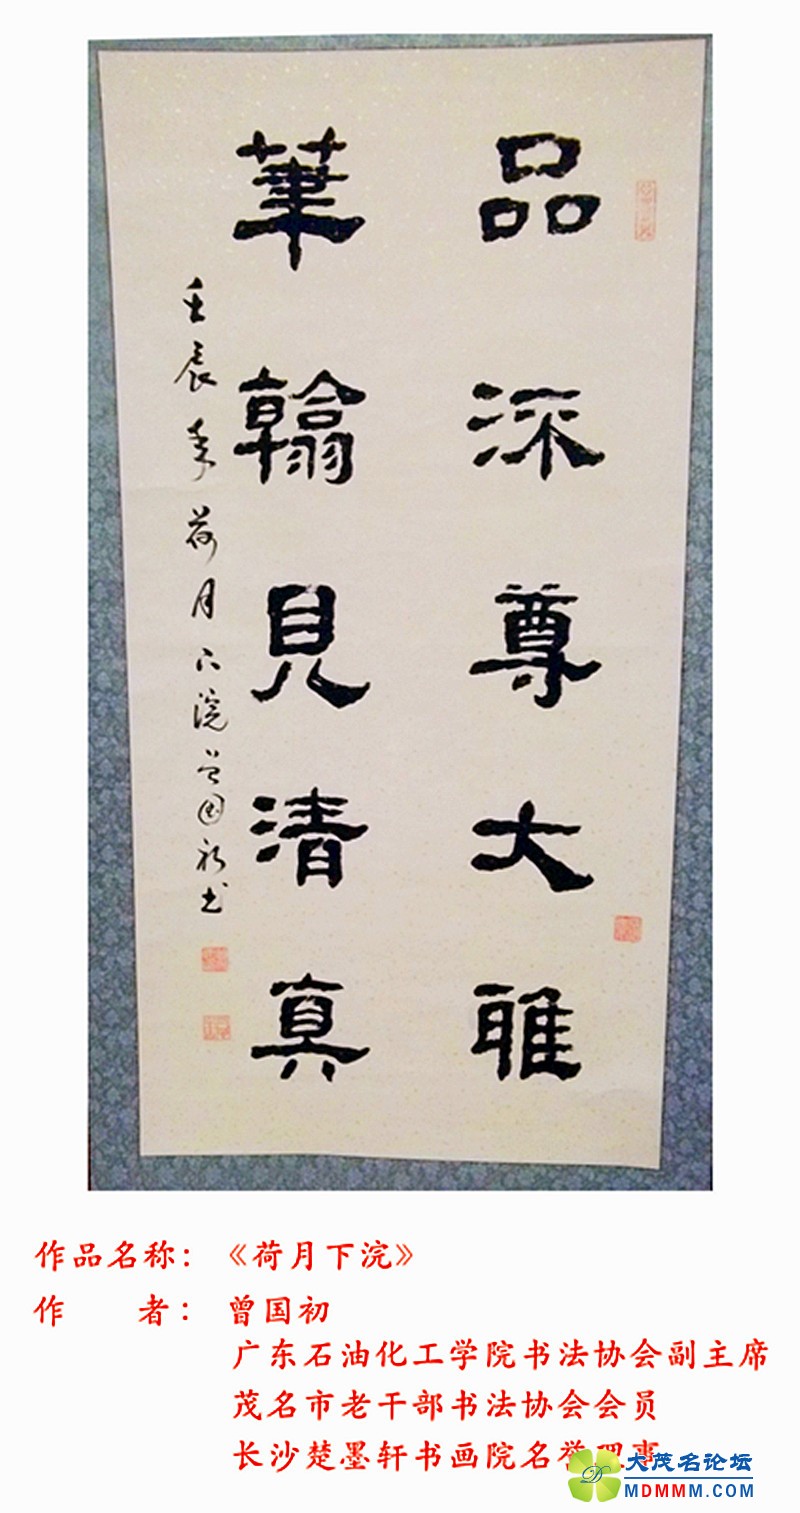 品尊大雅
筆翰見清真
壬辰年荷月下浣曾国初书
作品名称：《荷月下浣》
作 者：曾国初
广东石油化工学院书法协会副主席
茂名市老干部书法协会会员
长沙楚墨轩书画院名誉理事
大茂名论坛
MDMMM.COM